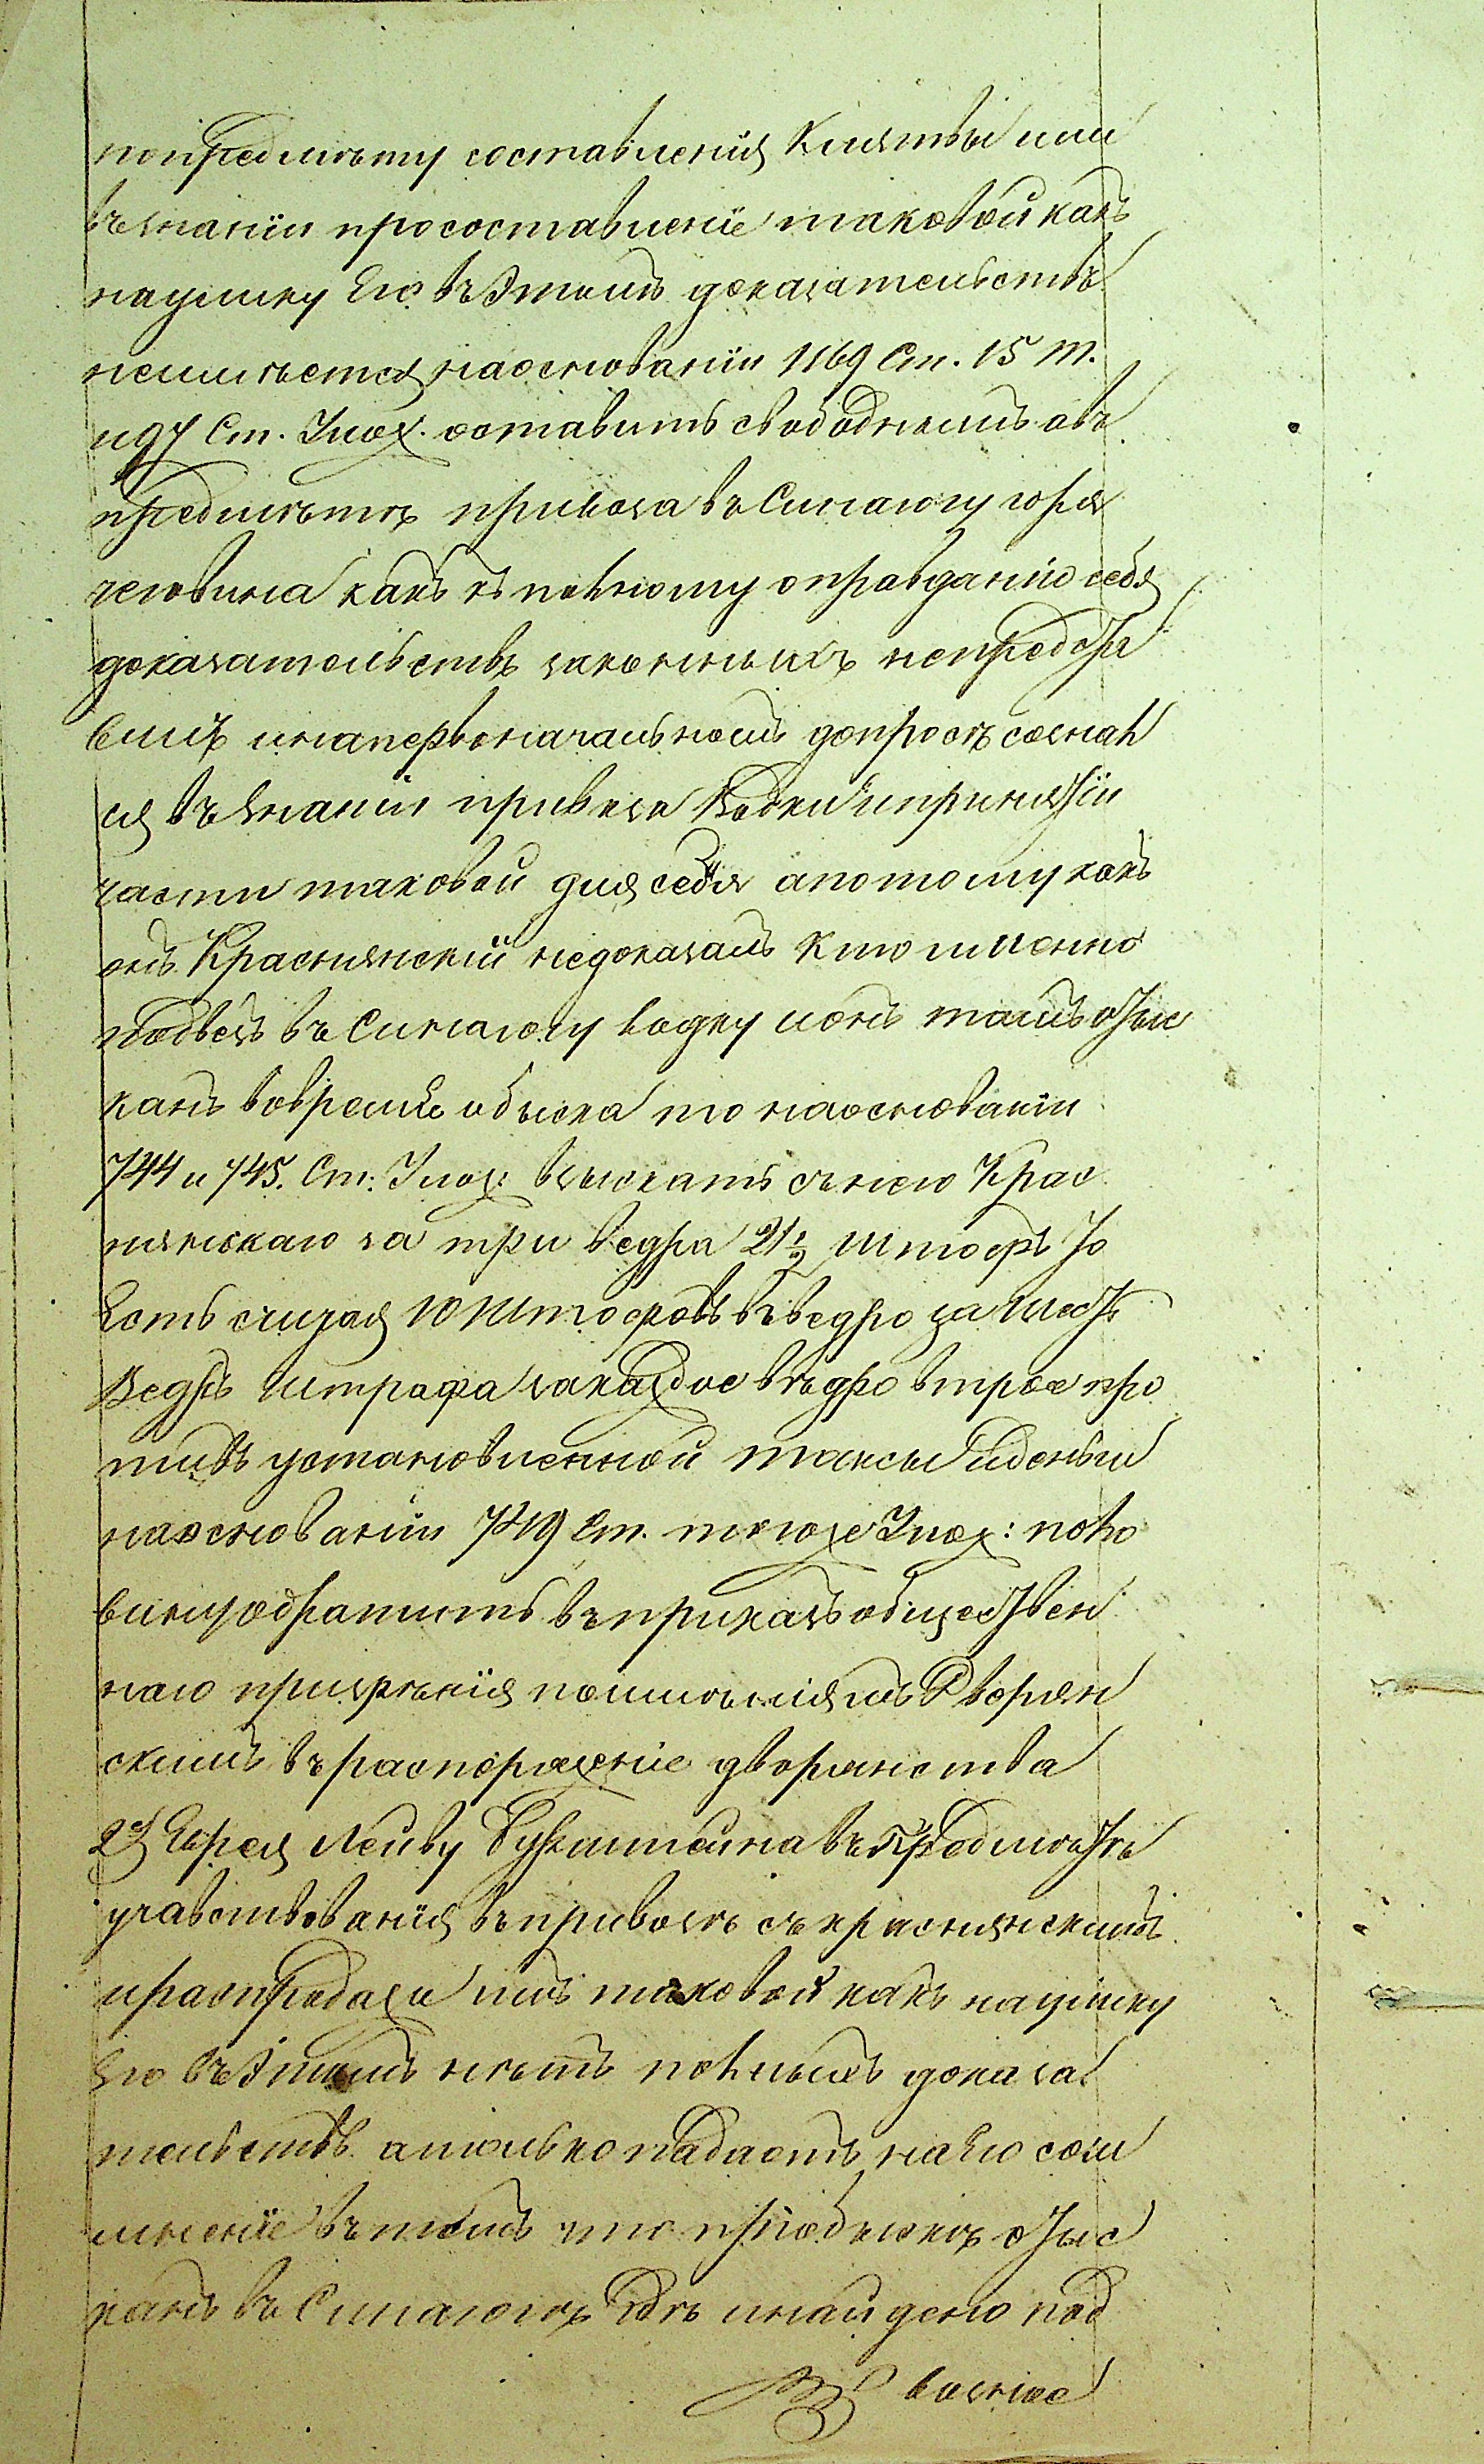 попредмѣту составленія Клятвы или
въ знаніи просоставленіе таковой какъ
наулику Его въ Этомъ доказательствъ
неимѣется наоснованіи 1169 Ст. 15 Т.
Ст. Улож. оставить свободнымъ авъ
предмѣтѣ привоза въ Синагогу горя
чеговина какъ къ полному оправданію себя
доказательствъ законныхъ непредста
вилъ инапервоначальномъ допросѣ сознал
ся въ знаніи привоза Водки ипринятіи
части таковой для себя апотому какъ
онъ Краснянскій недоказалъ Кто именно
подвезъ въ Синагогу водку ионъ тамъ отыс
канъ вовремя обыска то наоснованіи
744 и 745. Ст: Улож: взыскать сънего Крас
нянскаго за три ведра 21½ Штофъ то
Есть считая 10 Штофовъ въведро за шесть
Ведръ Штрафа закаждое вѣдро втрое про
тивъ установленной таксы иденьги
наоснованіи 749 Ст. тогоже Улож: поло
вину обратить въприказъ общественн
наго призрѣнія поимѣніямъ Дворян
скимъ въ распоряженіе дворянства
2е Еврея Лейбу въпредмѣтѣ
учавствованія въпривозѣ съкраснянскимъ
ираспродажи имъ таковой какъ наулику
Его въ Этомъ нѣтъ полныхъ доказа
тельствъ атолько падаетъ наЕго сом
мненіе въ томъ что отыс
канъ въ Синагогѣ гдѣ инайдено под
возное